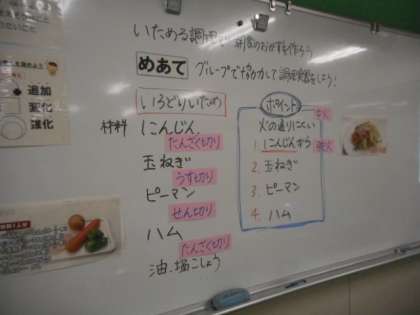 いためる調理で 朝食のおかずを作ろう
めあて グループで協力して調理実習をしよう!
いろどりいため
材料 にんじん
たんざく切り
玉ねぎ
うす切り
ピーマン
せん切り
ハム
たんざく切り
油、塩こしょう
ポイント
火の通りにくい
1. にんじんから
2. 玉ねぎ
3. ピーマン
4. ハム
追加
変化
進化